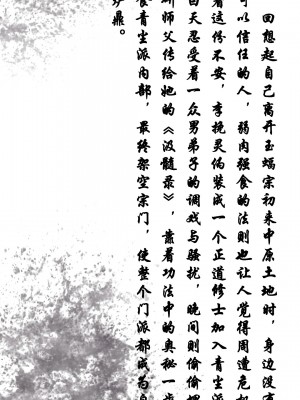 回想起自己离开玉蝠宗初来中原土地时，身边没
可以信任的人，弱肉强食的法则也让人觉得周遭危机
着这份不安，李挽灵伪装成一个正道修士加入青尘派
白天忍受着一众男弟子的调戏与骚扰，晚间则偷偷
研师父传给她的《汲髓录》，靠着功法中的奥秘一步
食青尘派内部，最终架空宗门，使整个门派都成为自
炉鼎。